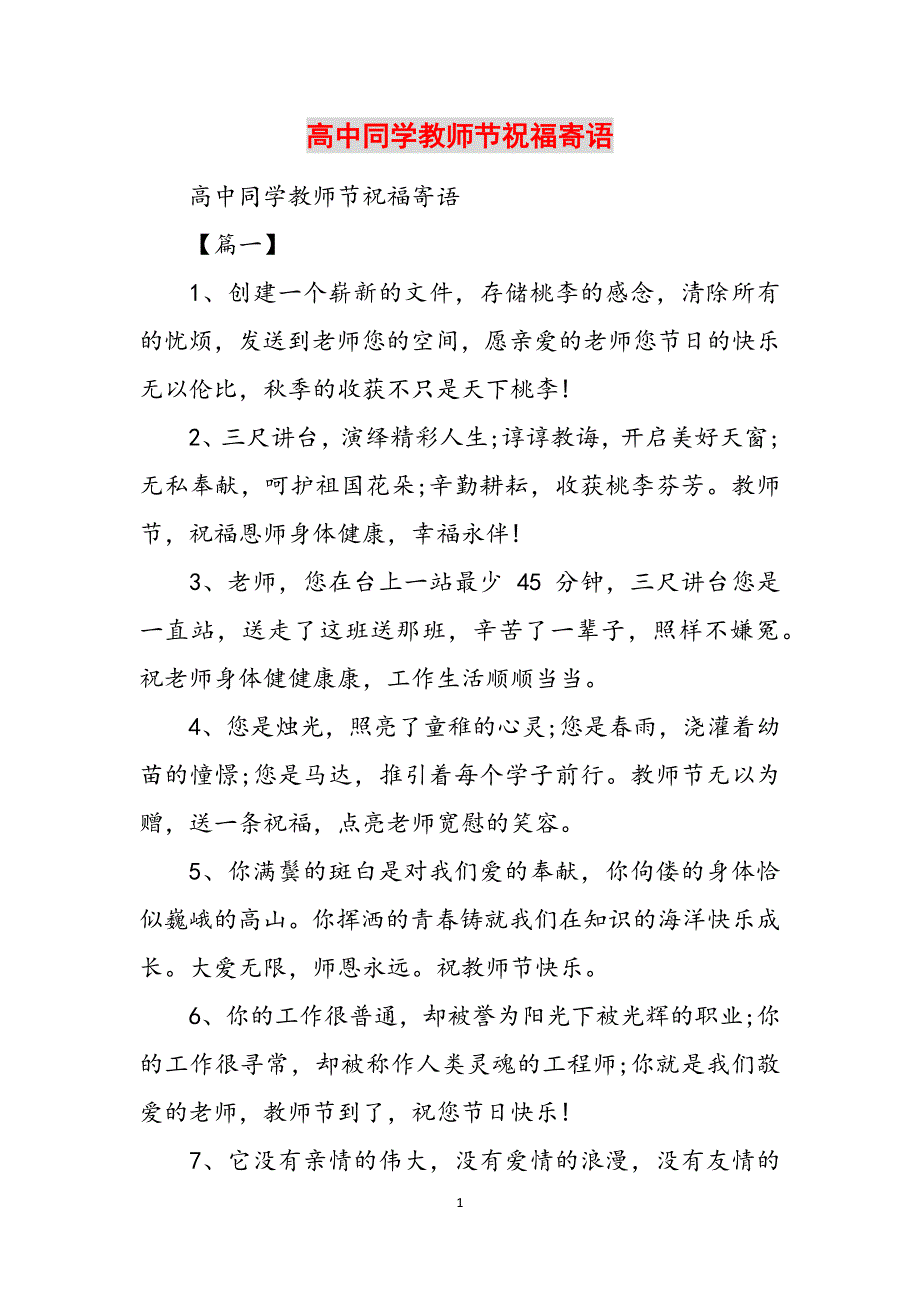 高中同学教师节祝福寄语
高中同学教师节祝福寄语
【篇一】
1、创建一个崭新的文件，存储桃李的感念，清除所有
的忧烦，发送到老师您的空间，愿亲爱的老师您节日的快乐
无以伦比，秋季的收获不只是天下桃李！
2、三尺讲台，演绎精彩人生;谆谆教诲，开启美好天窗;
无私奉献，呵护祖国花朵;辛勤耕耘，收获桃李芬芳。教师
节，祝福恩师身体健康，幸福永伴！
3、老师，您在台上一站最少 45 分钟，三尺讲台您是
一直站，送走了这班送那班，辛苦了一辈子，照样不嫌冤。
祝老师身体健健康康，工作生活顺顺当当。
4、您是烛光，照亮了童稚的心灵;您是春雨，浇灌着幼
苗的憧憬;您是马达，推引着每个学子前行。教师节无以为
赠，送一条祝福，点亮老师宽慰的笑容。
5、你满鬓的斑白是对我们爱的奉献，你佝偻的身体恰
似巍峨的高山。你挥洒的青春铸就我们在知识的海洋快乐成
长。大爱无限，师恩永远。祝教师节快乐。
6、你的工作很普通，却被誉为阳光下被光辉的职业;你
的工作很寻常，却被称作人类灵魂的工程师;你就是我们敬
爱的老师，教师节到了，祝您节日快乐！
7、它没有亲情的伟大，没有爱情的浪漫，没有友情的
1